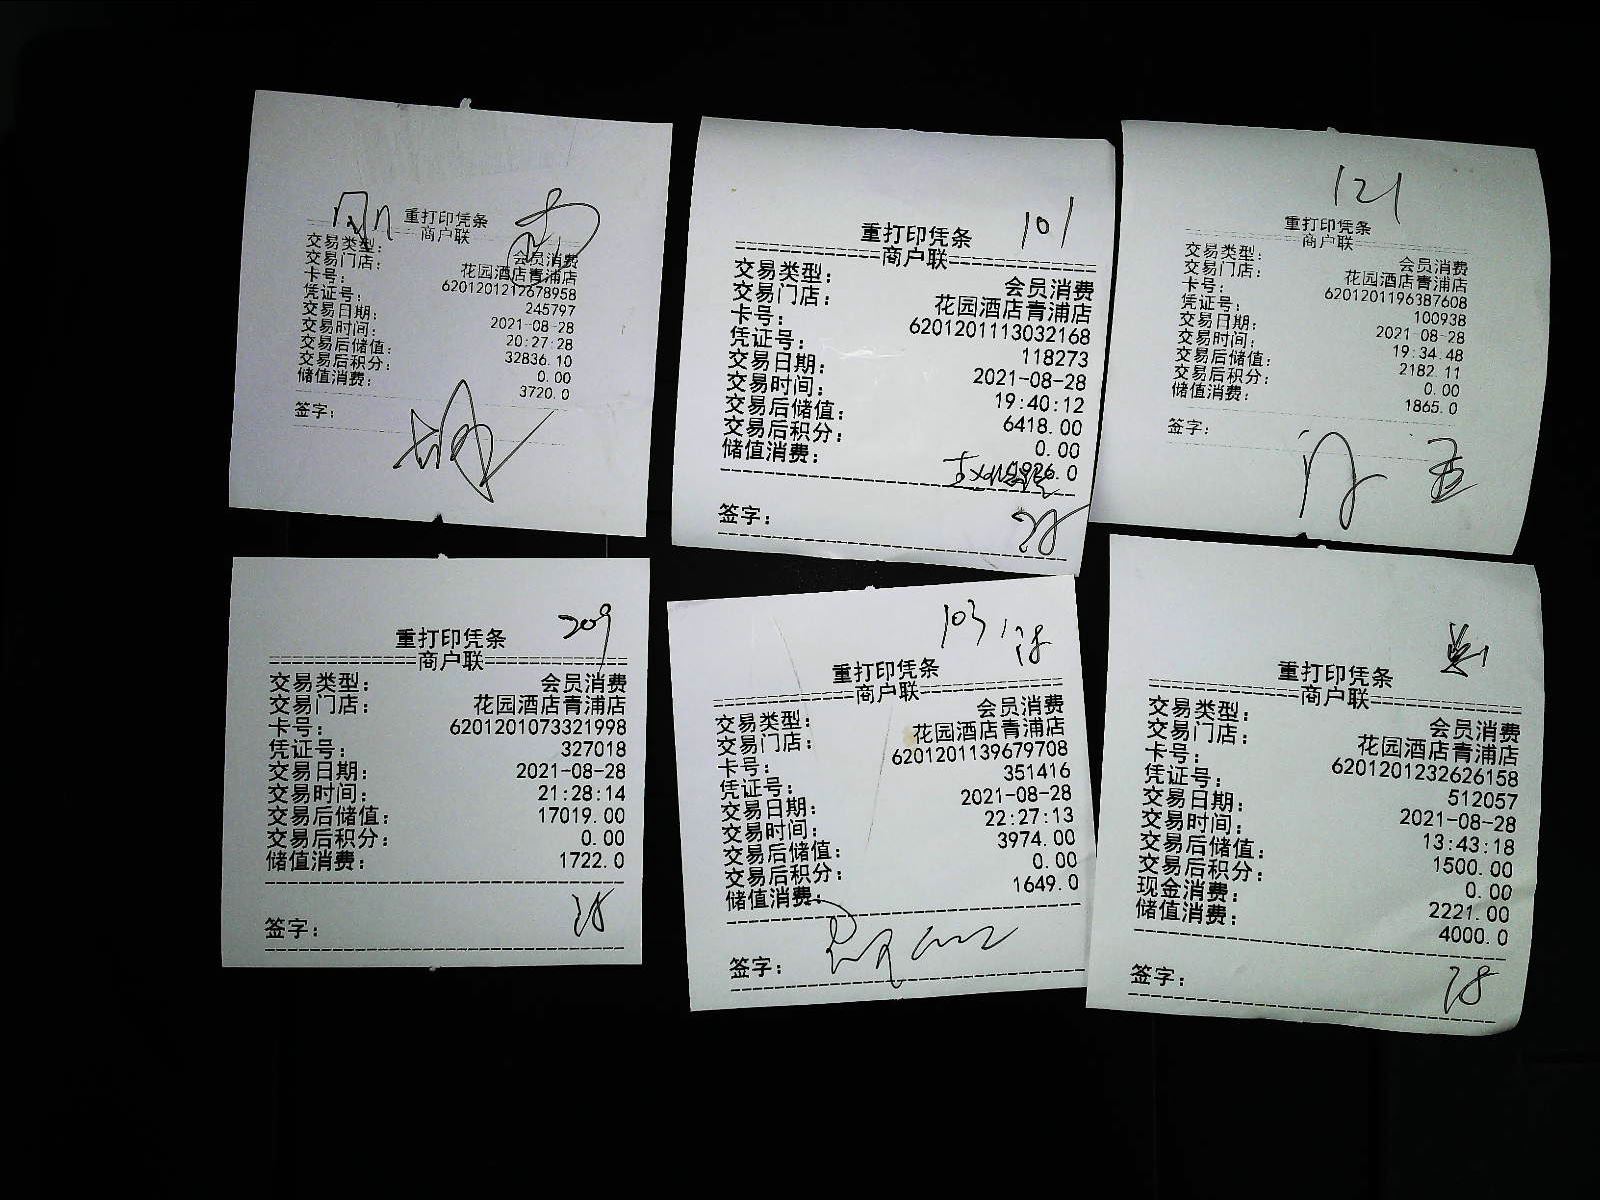 重打印凭条
商户联
交易类型： 会员消费
交易门店： 花园酒店青浦店
卡号： 6201201212678958
凭证号： 245797
交易日期： 2021-08-28
交易时间： 20:27:28
交易后储值： 32836.10
交易后积分： 0.00
储值消费： 3720.0
签字：
101
重打印凭条
商户联
交易类型： 会员消费
交易门店： 花园酒店青浦店
卡号： 6201201113032168
凭证号： 118273
交易日期： 2021-08-28
交易时间： 19:40:12
交易后储值： 6418.00
交易后积分： 0.00
储值消费： 1926.0
签字：
121
重打印凭条
商户联
交易类型： 会员消费
交易门店： 花园酒店青浦店
卡号： 6201201196387608
凭证号： 100938
交易日期： 2021-08-28
交易时间： 19:34:48
交易后储值： 2182.11
交易后积分： 0.00
储值消费： 1865.0
签字：
209
重打印凭条
商户联
交易类型： 会员消费
交易门店： 花园酒店青浦店
卡号： 6201201073321998
凭证号： 327018
交易日期： 2021-08-28
交易时间： 21:28:14
交易后储值： 17019.00
交易后积分： 0.00
储值消费： 1722.0
签字：
103
重打印凭条
商户联
交易类型： 会员消费
交易门店： 花园酒店青浦店
卡号： 6201201139679708
凭证号： 351416
交易日期： 2021-08-28
交易时间： 22:27:13
交易后储值： 3974.00
交易后积分： 0.00
储值消费： 1649.0
签字：
重打印凭条
商户联
交易类型： 会员消费
交易门店： 花园酒店青浦店
卡号： 6201201232626158
凭证号： 512057
交易日期： 2021-08-28
交易时间： 13:43:18
交易后储值： 1500.00
交易后积分： 0.00
现金消费： 2221.00
储值消费： 4000.0
签字：